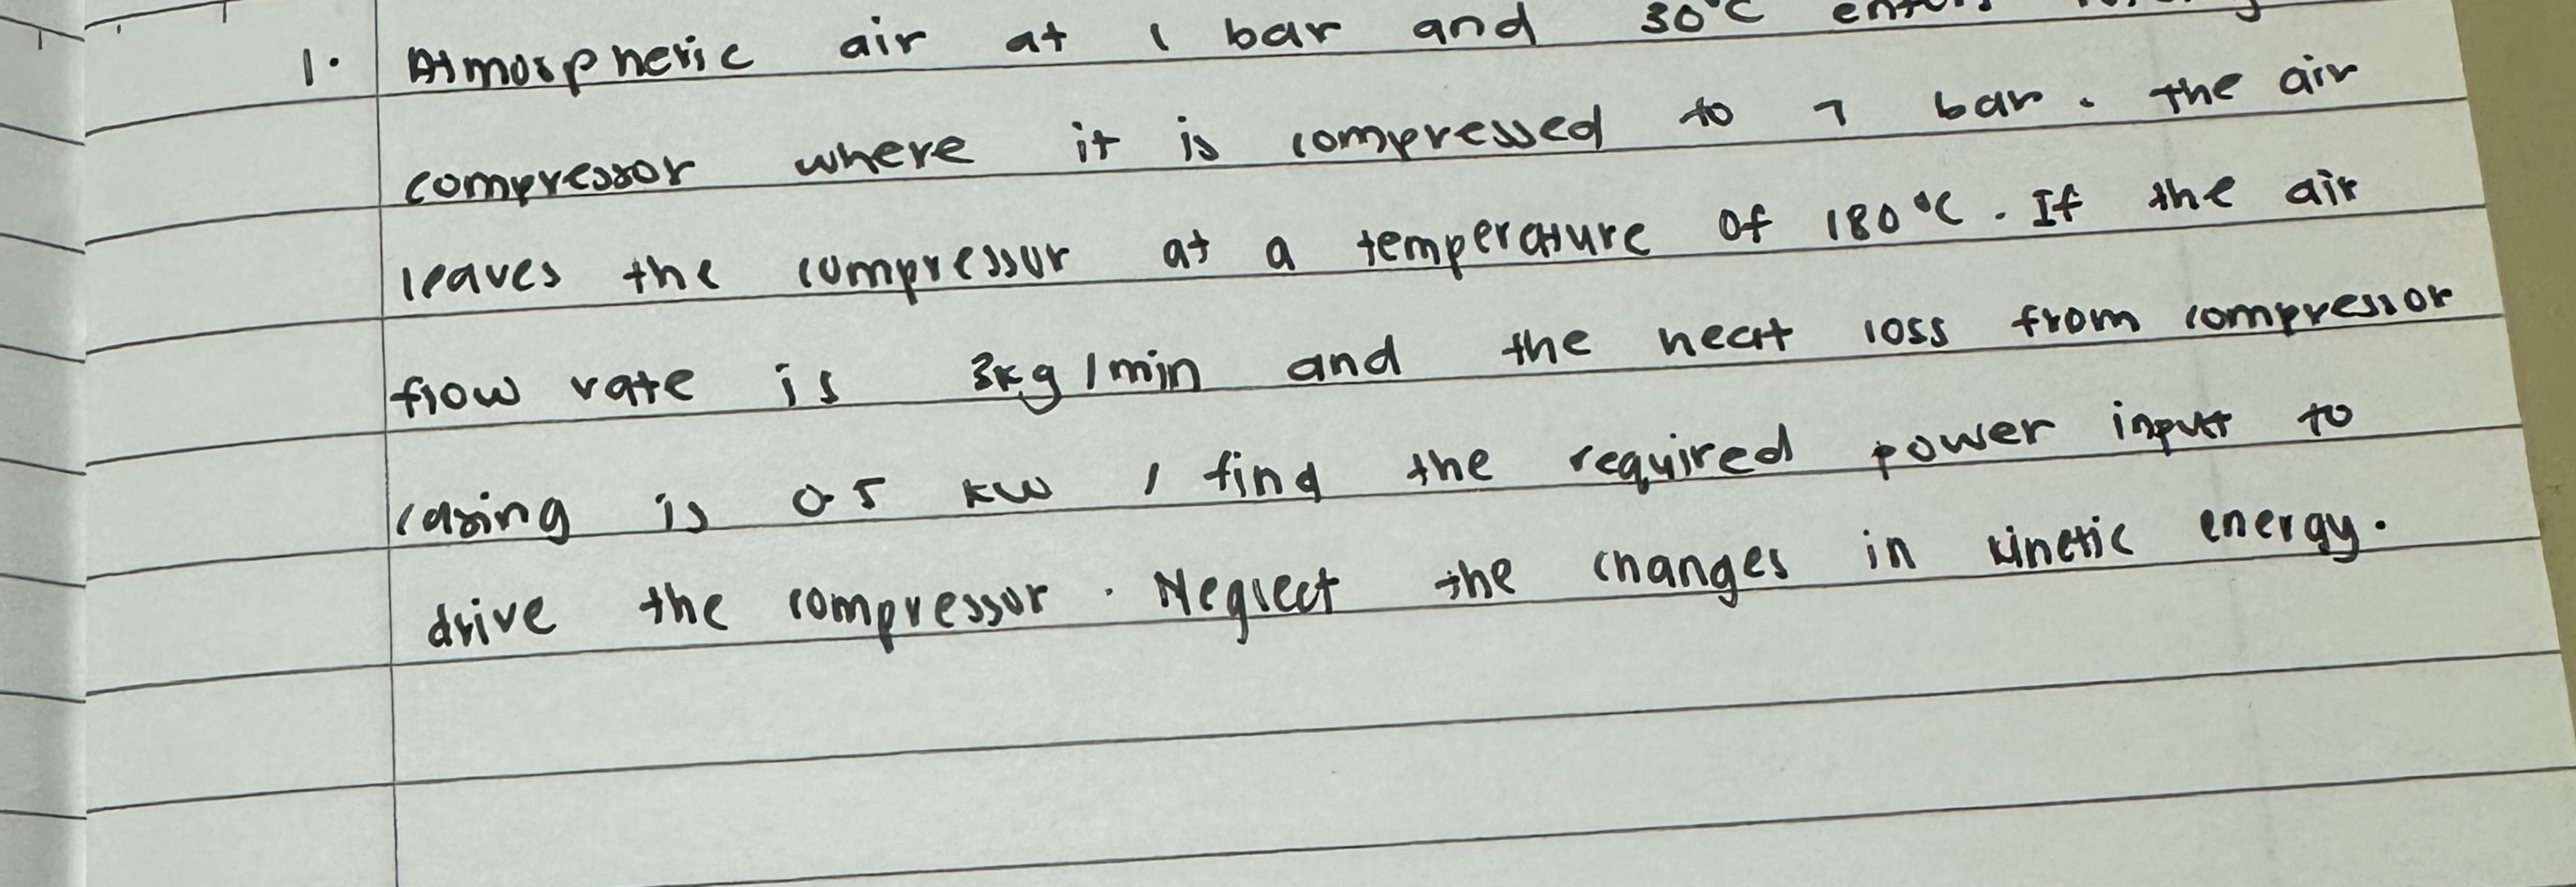 1. Atmospheric air at 1 bar and 30°C enters
compressor where it is compressed to 7 bar. the air
leaves the compressor at a temperature of 180°C. If the air
flow rate is 3kg/min and the heat loss from compressor
casing is 0.5 kW, find the required power input to
drive the compressor. Neglect the changes in kinetic energy.